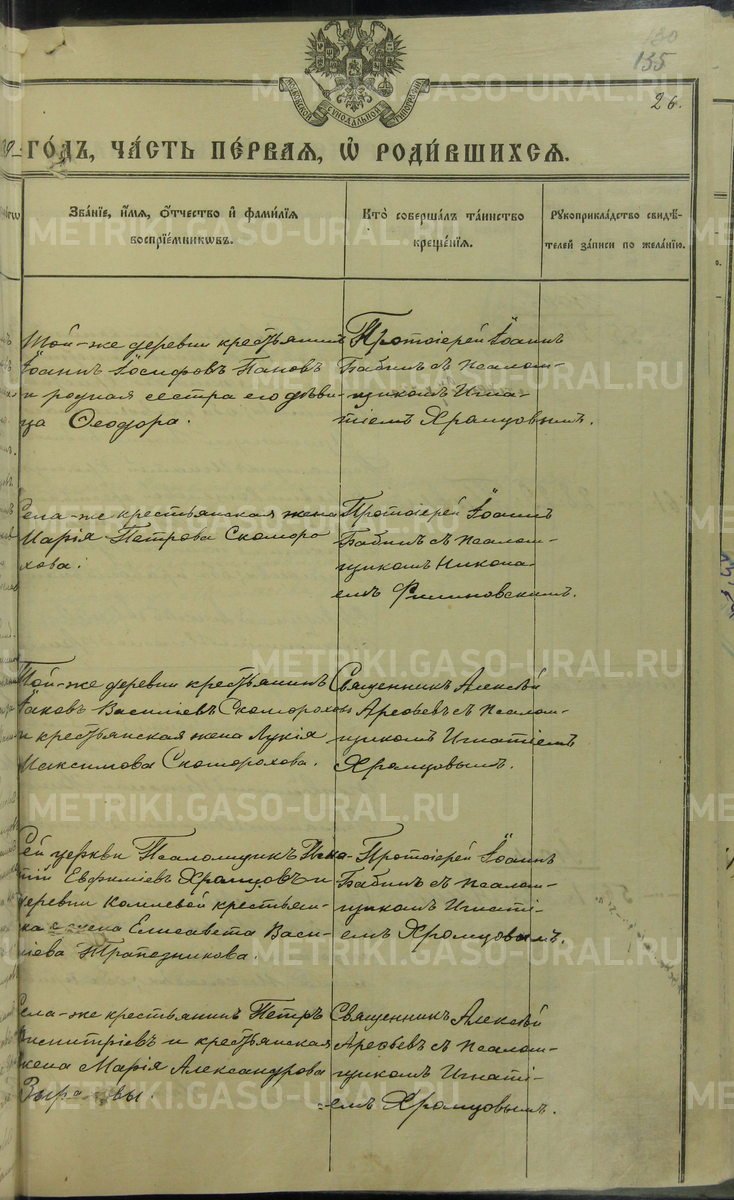 130
135
26.
МОСКОВСКОЙ СѴНОДАЛЬНОЙ ТИПОГРАФІИ
го́дъ, ча́сть пе́рвая, ѡ҆ роди́вшихсѧ.
Зва́нїе, и҆́мѧ, ѻ҆́тчество и҆ фами́лїѧ
воспрїе́мникѡвъ.
Кто̀ соверша́лъ та́инство
креще́нїѧ.
Рꙋкоприкла́дство свидѣ́-
телей за́писи по жела́нїю.
Той-же деревни крестьянинъ
Іоаннъ Іосифовъ Пановъ
и родная сестра его дѣви-
ца Ѳеодора.
Протоіерей Іоаннъ
Бабинъ съ псалом-
щикомъ Игна-
тіемъ Хромцовымъ.
Села-же крестьянская жена
Марія Петрова Скоморо
хова.
Протоіерей Іоаннъ
Бабинъ съ псалом-
щикомъ Никола-
емъ Филиновскимъ.
Той-же деревни крестьянинъ
Іаковъ Василіевъ Скомороховъ
и крестьянская жена Лукія
Максимова Скоморохова.
Священникъ Алексѣй
Арефьевъ съ псалом-
щикомъ Игнатіемъ
Хромцовымъ.
Сей церкви Псаломщикъ Игна-
тій Евфиміевъ Хромцовъ и
деревни крестьян-
жена Елисавета Васи-
ліева Трапезникова.
Протоіерей Іоаннъ
Бабинъ съ псалом-
щикомъ Игнаті-
емъ Хромцовымъ.
Села-же крестьянинъ Петръ
Димитріевъ и крестьянская
жена Марія Александрова
Священникъ Алексѣй
Арефьевъ съ псалом-
щикомъ Игнаті-
емъ Хромцовымъ.
METRIKI.GASO-URAL.RU